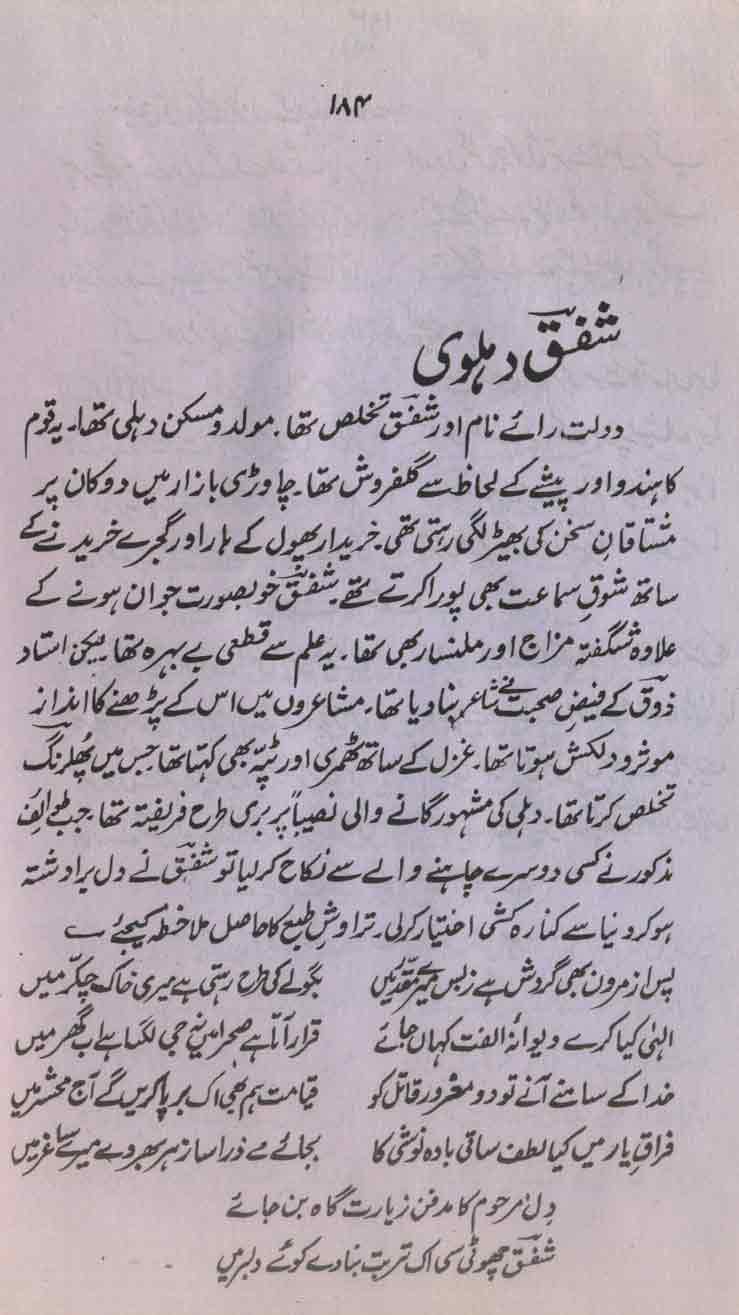 ۱۸۴
شفقؔ دہلوی
دولت رائے نام اور شفقؔ تخلص تھا۔ مولد و مسکن دہلی تھا۔ یہ قوم
کا ہندو اور پیشے کے لحاظ سے گلفروش تھا۔ چاوڑی بازار میں دوکان پر
مشتاقانِ سخن کی بھیڑ لگی رہتی تھی۔ خریدار پھول کے ہار اور گجرے خریدنے کے
ساتھ شوقِ سماعت بھی پورا کرتے تھے۔ شفقؔ خوبصورت جوان ہونے کے
علاوہ شگفتہ مزاج اور ملنسار بھی تھا۔ یہ علم سے قطعی بے بہرہ تھا لیکن استاد
ذوقؔ کے فیضِ صحبت نے شاعر بنا دیا تھا۔ مشاعروں میں اس کے پڑھنے کا انداز
موثر و دلکش ہوتا تھا۔ غزل کے ساتھ ٹھمری اور ٹپّہ بھی کہتا تھا جس میں پُھلرنگ
تخلص کرتا تھا۔ دہلی کی مشہور گانے والی نصیباً پر بری طرح فریفتہ تھا۔ جب طوائف
مذکور نے کسی دوسرے چاہنے والے سے نکاح کر لیا تو شفقؔ نے دل برداشتہ
ہو کر دنیا سے کنارہ کشی اختیار کر لی۔ تراوشِ طبع کا حاصل ملاحظہ کیجئے ؎
پس از مردن بھی گردش ہے زبس میرے مقدّر میں بگولے کی طرح رہتی ہے میری خاک چکّر میں
الٰہی کیا کرے دیوانۂ الفت کہاں جائے قرار آتا ہے صحرا میں نہ جی لگتا ہے اب گھر میں
خدا کے سامنے آنے تو دو مغرور قاتل کو قیامت ہم بھی اک برپا کریں گے آج محشر میں
فراقِ یار میں کیا لطف ساقی بادہ نوشی کا بجائے مے ذرا سا زہر بھر دے میرے ساغر میں
دلِ مرحوم کا مدفن زیارت گاہ بن جائے
شفقؔ چھوٹی سی اک تربت بنا دے کوئے دلبر میں